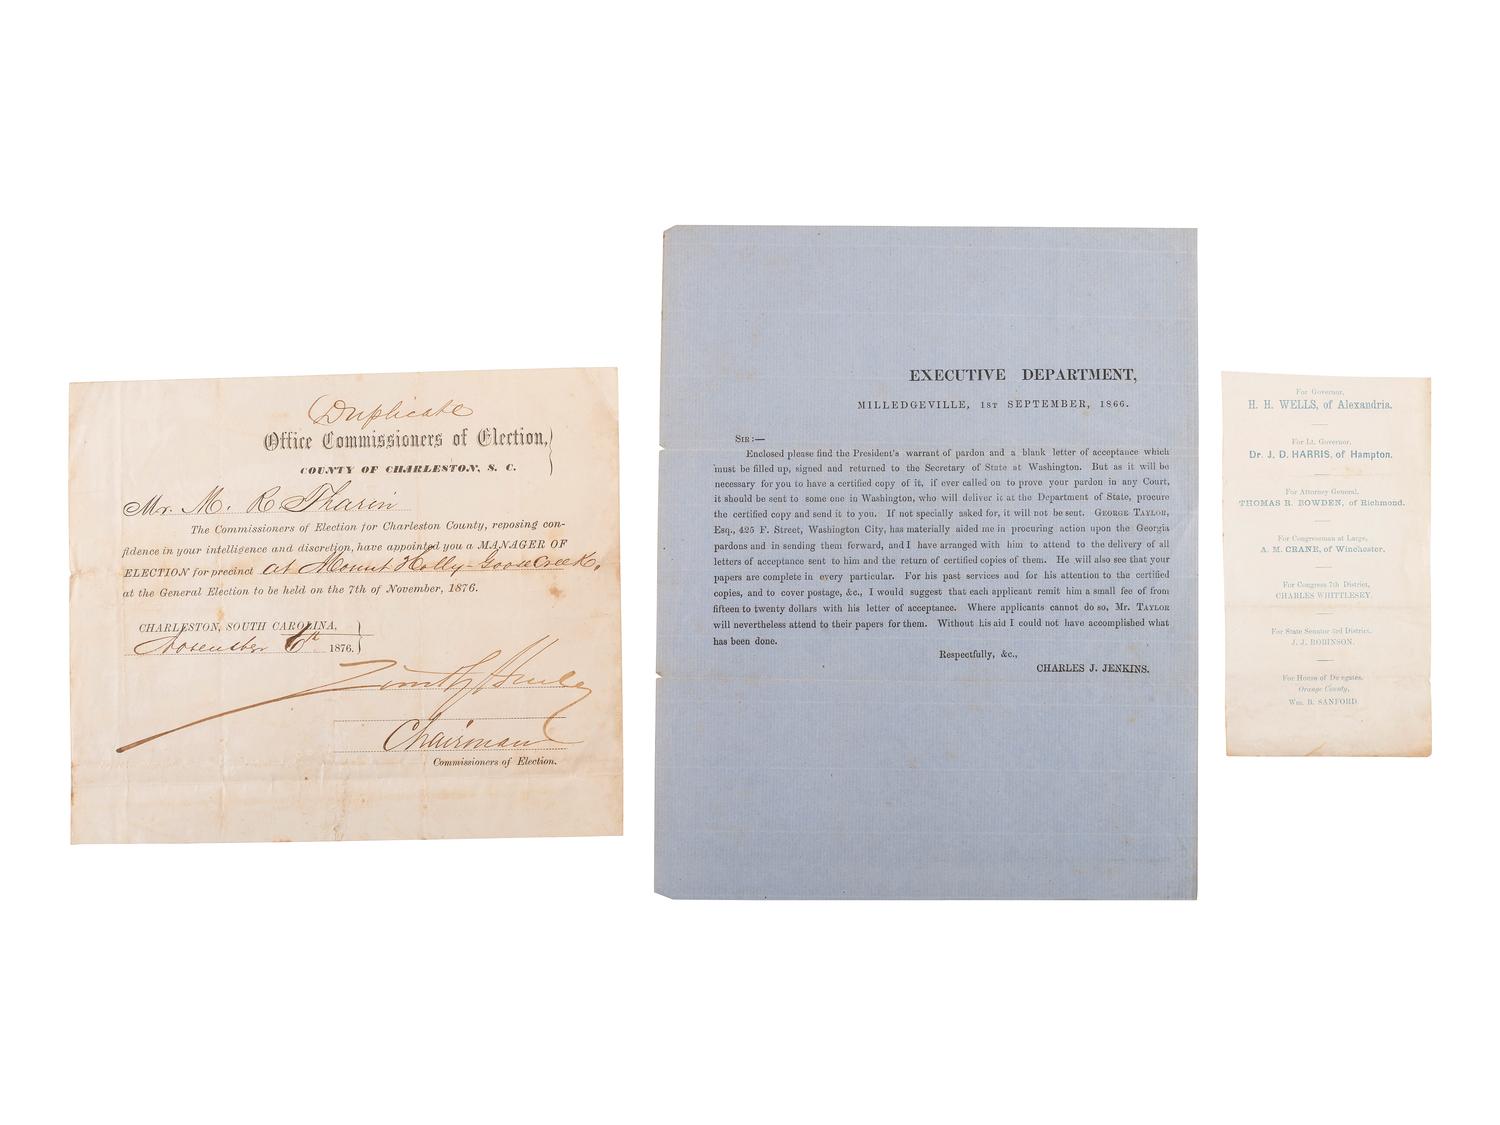 Duplicate
Office Commissioners of Election,
COUNTY OF CHARLESTON, S. C.
Mr. M. R. Tharin
The Commissioners of Election for Charleston County, reposing con-
fidence in your intelligence and discretion, have appointed you a MANAGER OF
ELECTION for precinct at Mount Holly - Goose Creek.
at the General Election to be held on the 7th of November, 1876.
CHARLESTON, SOUTH CAROLINA,
November 6th 1876.
Chairman
Commissioners of Election.
EXECUTIVE DEPARTMENT,
MILLEDGEVILLE, 1ST SEPTEMBER, 1866.
SIR:—
Enclosed please find the President's warrant of pardon and a blank letter of acceptance which
must be filled up, signed and returned to the Secretary of State at Washington. But as it will be
necessary for you to have a certified copy of it, if ever called on to prove your pardon in any Court,
it should be sent to some one in Washington, who will deliver it at the Department of State, procure
the certified copy and send it to you. If not specially asked for, it will not be sent. GEORGE TAYLOR,
Esq., 425 F. Street, Washington City, has materially aided me in procuring action upon the Georgia
pardons and in sending them forward, and I have arranged with him to attend to the delivery of all
letters of acceptance sent to him and the return of certified copies of them. He will also see that your
papers are complete in every particular. For his past services and for his attention to the certified
copies, and to cover postage, &c., I would suggest that each applicant remit him a small fee of from
fifteen to twenty dollars with his letter of acceptance. Where applicants cannot do so, Mr. TAYLOR
will nevertheless attend to their papers for them. Without his aid I could not have accomplished what
has been done.
Respectfully, &c.,
CHARLES J. JENKINS.
For Governor,
H. H. WELLS, of Alexandria.
For Lt. Governor,
Dr. J. D. HARRIS, of Hampton.
For Attorney General,
THOMAS R. BOWDEN, of Richmond.
For Congressman at Large,
A. M. CRANE, of Winchester.
For Congress 7th District,
CHARLES WHITTLESEY.
For State Senator 3rd District,
J. J. ROBINSON.
For House of Delegates,
Orange County,
Wm. B. SANFORD